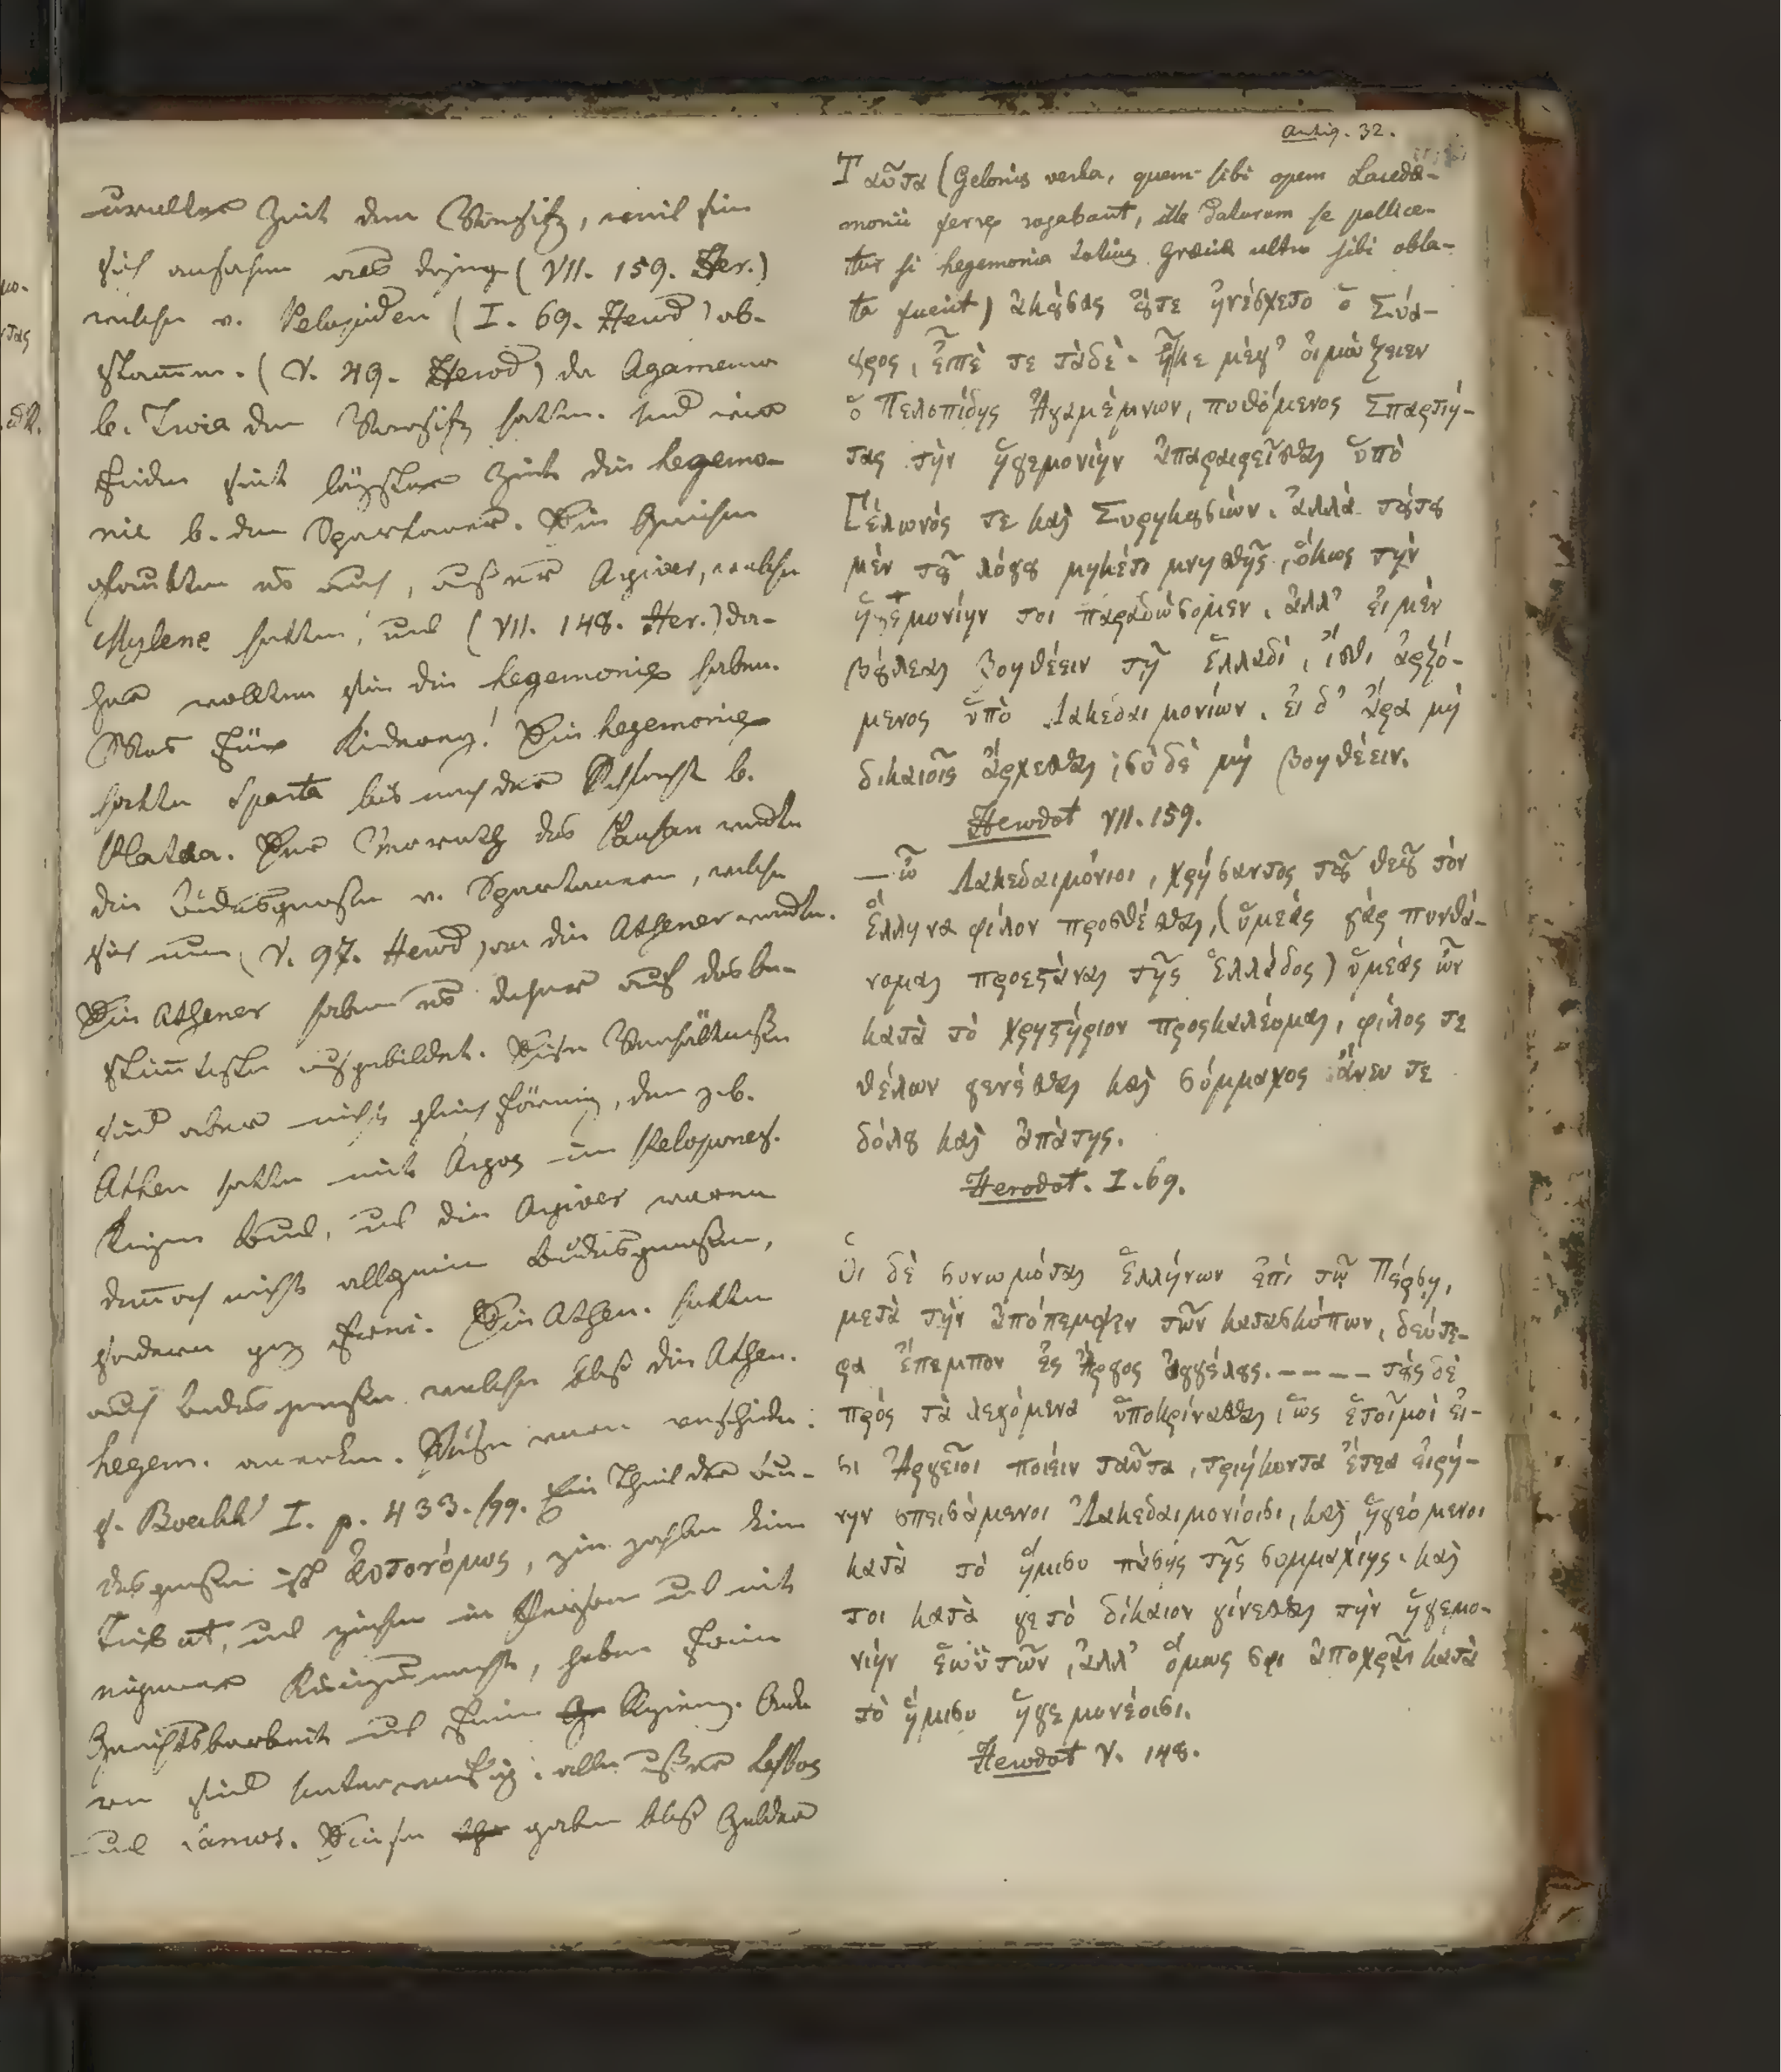 uralter Zeit den Vorsitz, weil sie
sich ansahen als diejenig (VII. 159. Her.)
welche v. Pelopiden (I. 69. Herod) ab-
stammen. (V. 49. Herod) da Agamemno
b. Troia den Vorsitz hatte. Und wir
finden seit längster Zeit die hegemo-
nie b. den Spartaner. Die Griechen
glaubten es auch, außer Argiver, welche
Mykene hatten, und (VII. 148. Her.) da-
her wollten sie die hegemonie haben.
Was für
Die hegemonie
hatte Sparta bis nach der Schlacht b.
Plataea. Der Verrath des Pausan wendte
die Bundesgenossen v. Spartanern, welche
sich nun (V. 97. Herod) an die Athener wendten.
Die Athener haben es daher auf das be-
stimteste ausgebildet. Diese Verhältnisse
sind aber nicht gleichförmig, den z.b.
Athen hatte mit Argos im Pelopones.
Krigen Bund, und die Argiver waren
dennoch nicht allgemein Bundesgenossen,
sondern ganz frei. Die Athen. hatten
auch Bundesgenossen welche bloß die Athen.
hegem. anerken. Diese waren verschieden:
s. Boeckh I. p. 433. sqq. Ein Theil der Bun-
desgenossen ist ἀυτονόμως, sie zahlen kein
Tribut, und ziehen in Person und mit
eigener Kriegsmacht, haben freie
Gerichtsbarkeit und freie Regierung. Ande
ren sind unterwürfig: alle außer Lesbos
und Samos. Diese gaben bloß Gelder
Antiq. 32.
Ταῦτα (Gelonis verba, quem sibi opem Lacedæ-
monii ferre rogabant, ille daturum se pollice-
tur si hegemonia totius Græciæ ultro sibi obla-
ta fuerit) ἀκούσας οὔτε ἠνέσχετο ὁ Σύα-
γρος, εἶπέ τε τάδε. ἦ κε μέγ' οἰμώξειεν
ὁ Πελοπίδης Ἀγαμέμνων, πυθόμενος Σπαρτιή-
τας τὴν ἡγεμονίην ἀπαραιρεῖσθαι ὑπὸ
Γέλωνός τε καὶ Συρηκουσίων. ἀλλὰ τούτου
μὲν τοῦ λόγου μηκέτι μνησθῇς, ὅκως τὴν
ἡγεμονίην τοι παραδώσομεν. ἀλλ' εἰ μὲν
βούλεαι βοηθέειν τῇ Ἑλλάδι, ἴσθι ἀρξό-
μενος ὑπὸ Λακεδαιμονίων. εἰ δ' ἄρα μὴ
δικαιοῖς ἄρχεσθαι, σὺ δὲ μὴ βοηθέειν.
Herodot VII. 159.
— ὦ Λακεδαιμόνιοι, χρήσαντος τοῦ θεοῦ τὸν
Ἕλληνα φίλον προσθέσθαι, (ὑμέας γὰρ πυνθά-
νομαι προεστάναι τῆς Ἑλλάδος) ὑμέας ὦν
κατὰ τὸ χρηστήριον προςκαλέομαι, φίλος τε
θέλων γενέσθαι καὶ σύμμαχος ἄνευ τε
δόλου καὶ ἀπάτης.
Herodot. I. 69.
Οἱ δὲ συνωμόται Ἑλλήνων ἐπὶ τῷ Πέρσῃ,
μετὰ τὴν ἀπόπεμψιν τῶν κατασκόπων, δεύτε-
ρα ἔπεμπον ἐς Ἄργος ἀγγέλους. ---- τοὺς δὲ
πρὸς τὰ λεγόμενα ὑποκρίνασθαι, ὡς ἑτοῖμοί εἰ-
σι Ἀργεῖοι ποιέιν ταῦτα, τριήκοντα ἔτεα εἰρή-
νην σπεισάμενοι Λακεδαιμονίοισι, καὶ ἡγεόμενοι
κατὰ τὸ ἥμισυ πάσης τῆς συμμαχίης. καὶ
τοι κατά γε τὸ δίκαιον γίνεσθαι τὴν ἡγεμο-
νίην ἑωϋτῶν, ἀλλ' ὅμως σφι ἀποχρᾶν κατὰ
τὸ ἥμισυ ἡγεμονέουσι.
Herodot V. 148.